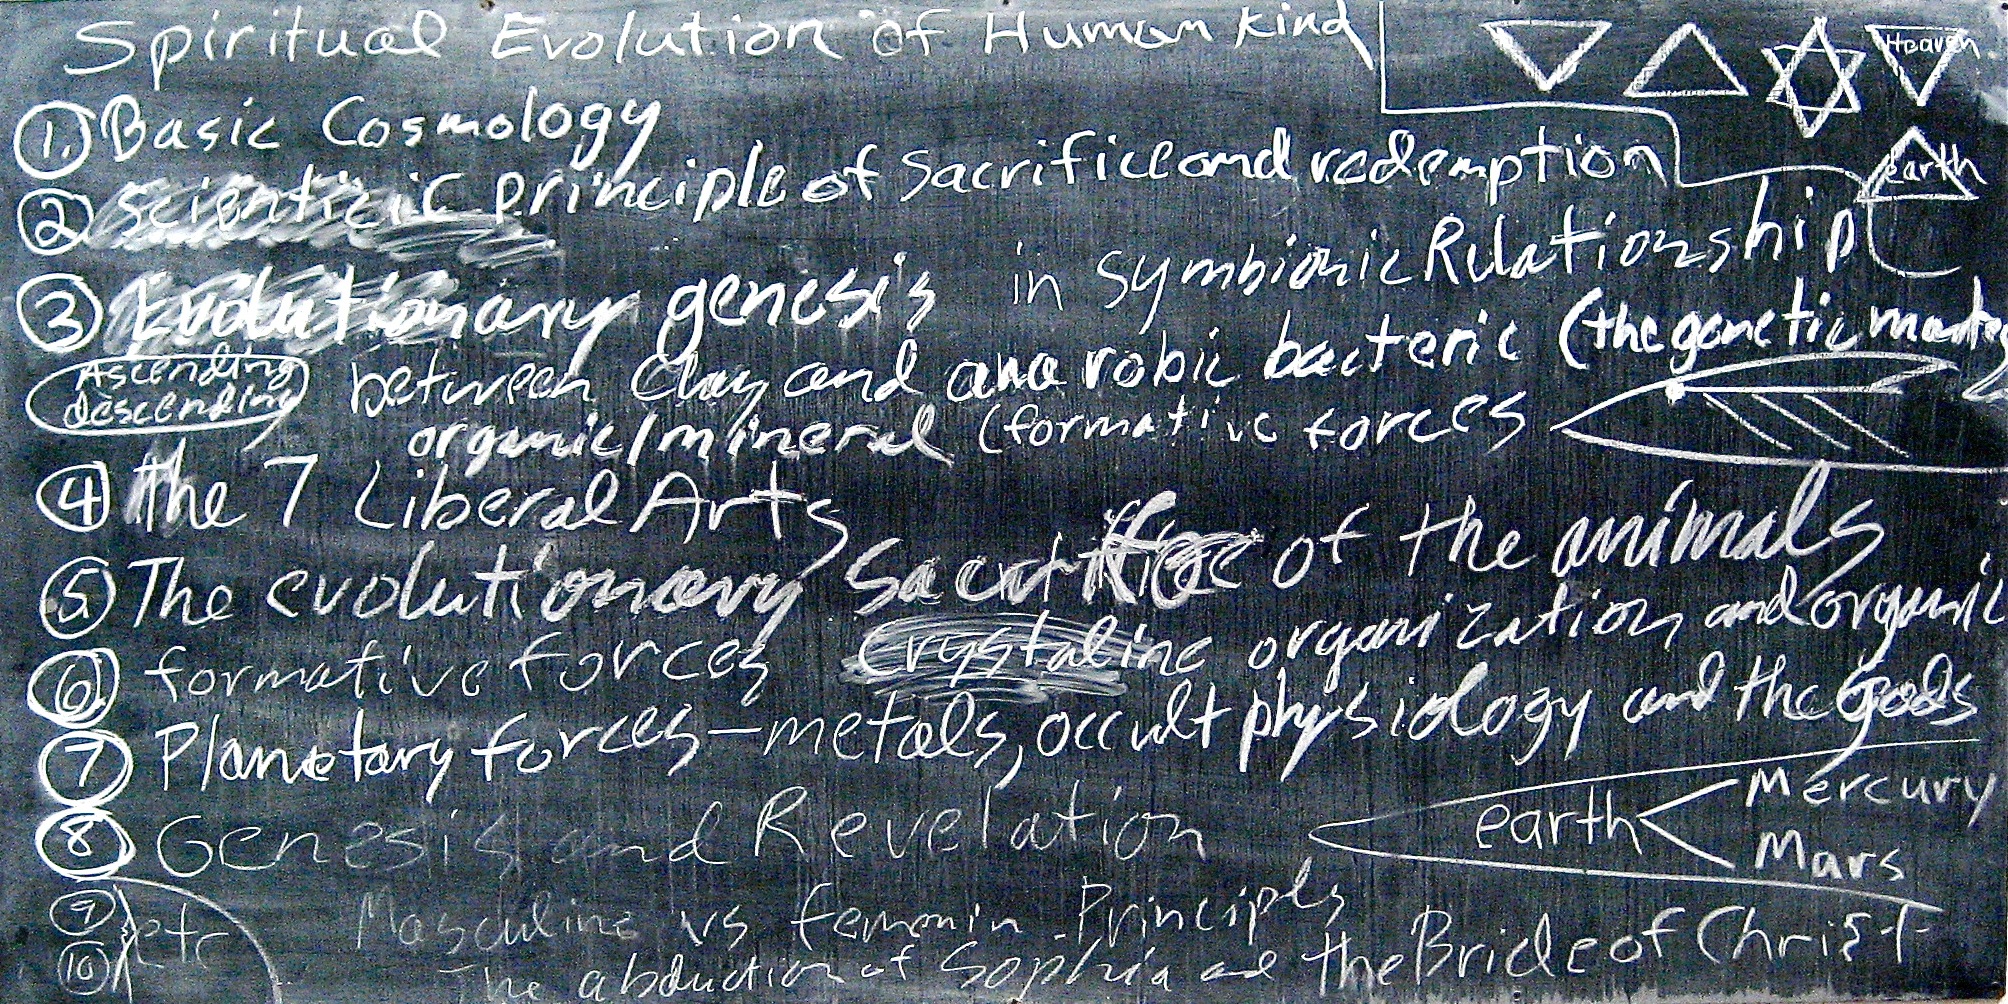 Spiritual Evolution of Human Kind
Heaven
earth
1. Basic Cosmology
2 scientific principle of sacrifice and redemption
3 Evolutionary genesis in Symbionic Relationship
Ascending
descending
between clay and anarobic bacteric (the genetic
organic/mineral (formative forces
4 The 7 Liberal Arts
5. The evolutionary Sacrifice of the animals
6. formative forces crystaline organization and organic
7 Planetary forces—metals, occult physiology and the Gods
8 Genesis and Revelation
earth < Mercury
Mars
9 etc
10
Masculine vs femenin Principls
The abduction of Sophia and the Bride of Christ